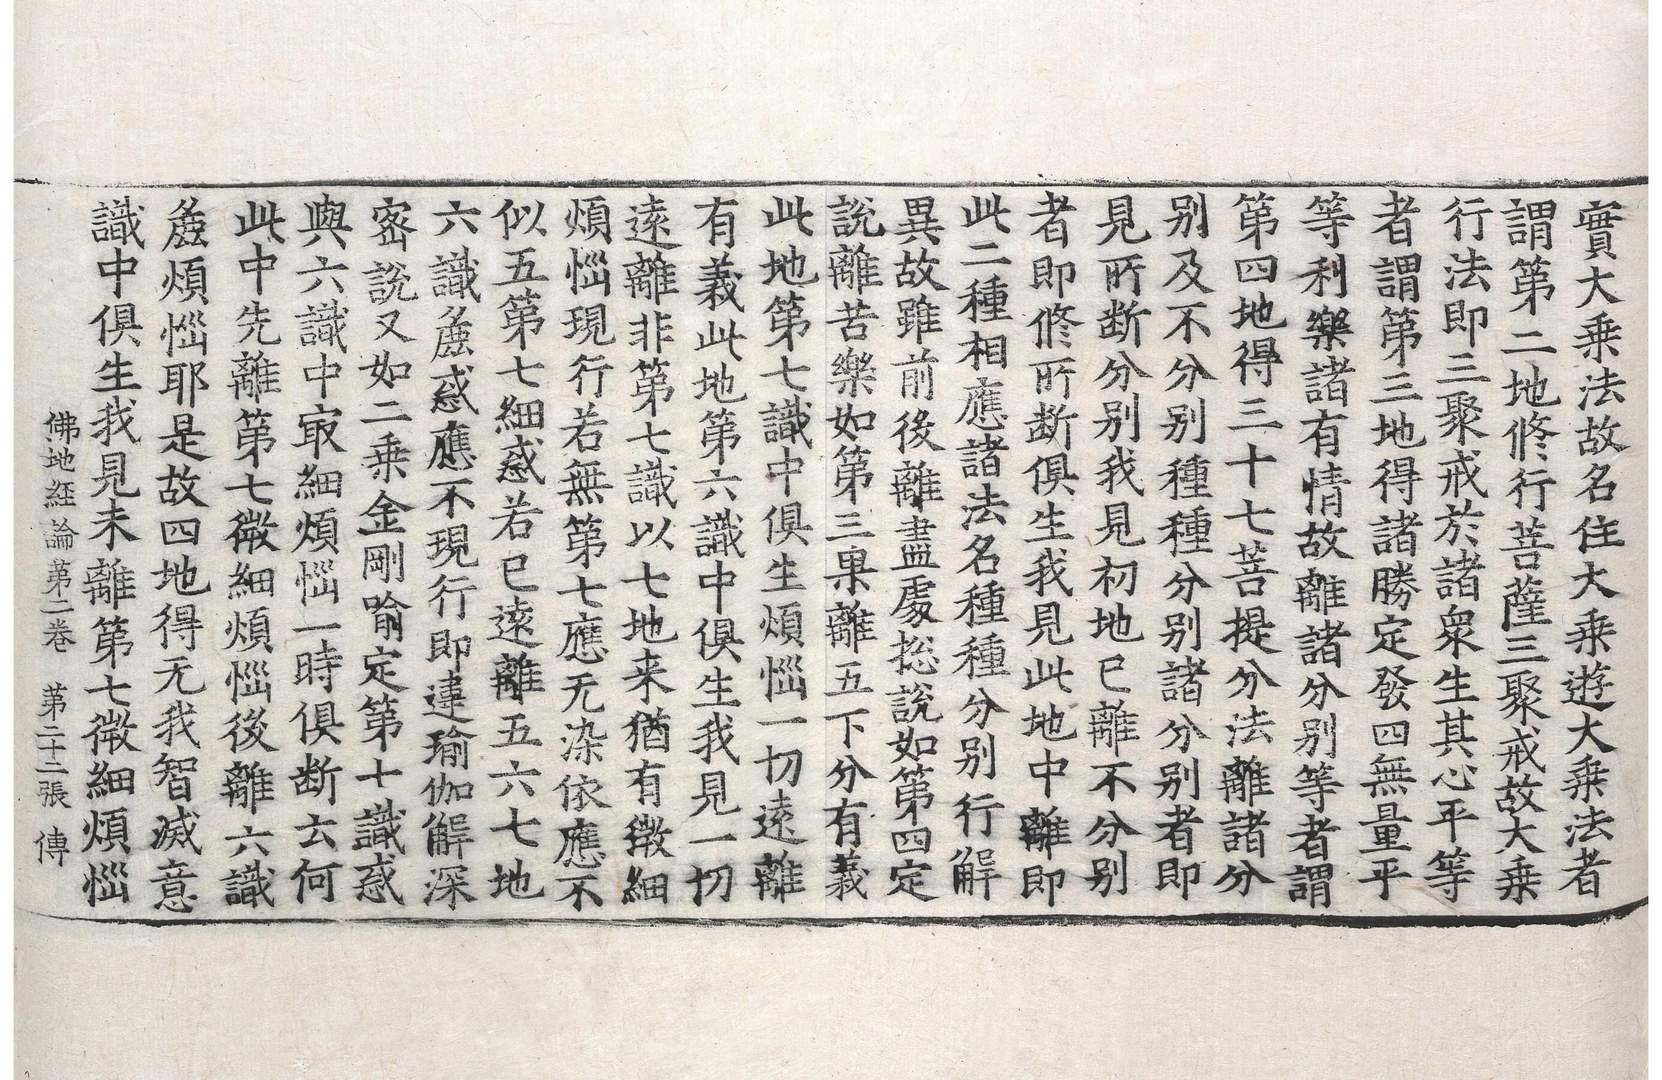 實大乗法故名住大乗遊大乗法者
謂第二地修行菩薩三聚戒故大乗
行法即三聚戒於諸衆生其心平等
者謂第三地得諸勝定發四無量平
等利樂諸有情故離諸分別等者謂
第四地得三十七菩提分法離諸分
別及不分別種種分別諸分別者即
見所断分別我見初地已離不分別
者即修所断俱生我見此地中離即
此二種相應諸法名種種分別行解
異故雖前後離盡處捴說如第四定
說離苦樂如第三果離五下分有義
此地第七識中俱生煩惱一切遠離
有義此地第六識中俱生我見一切
遠離非第七識以七地来猶有微細
煩惱現行若無第七應无染依應不
似五第七細惑若已遠離五六七地
六識麁惑應不現行即違瑜伽解深
密說又如二乗金剛喻定第七識惑
與六識中㝡細煩惱一時俱断云何
此中先離第七微細煩惱後離六識
麁煩惱耶是故四地得无我智滅意
識中俱生我見未離第七微細煩惱
佛地經論第二卷　第二十二張　傳